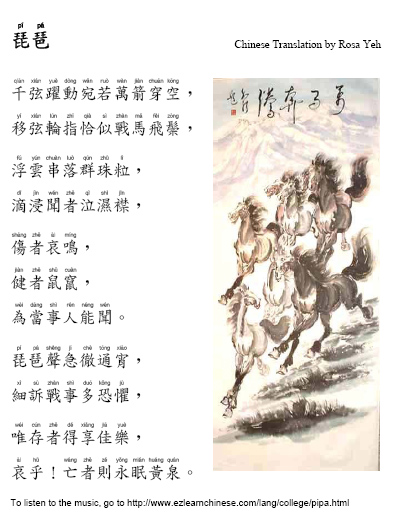 pí pá
琵琶
Chinese Translation by Rosa Yeh
qiān xián yuè dòng wǎn ruò wàn jiàn chuān kōng
千弦躍動宛若萬箭穿空，
yí xián lún zhǐ qià sì zhàn mǎ fēi zōng
移弦輪指恰似戰馬飛鬃，
fú yún chuàn luò qún zhū lì
浮雲串落群珠粒，
dī jìn wén zhě qì shī jīn
滴浸聞者泣濕襟，
shāng zhě āi míng
傷者哀鳴，
jiàn zhě shǔ cuàn
健者鼠竄，
wéi dāng shì rén néng wén
為當事人能聞。
pí pá shēng jí chè tōng xiāo
琵琶聲急徹通宵，
xì sù zhàn shì duō kǒng jù
細訴戰事多恐懼，
wéi cún zhě dé xiǎng jiā yuè
唯存者得享佳樂，
āi hū wáng zhě zé yǒng mián huáng quán
哀乎！亡者則永眠黃泉。
萬馬奔騰
To listen to the music, go to http://www.ezlearnchinese.com/lang/college/pipa.html